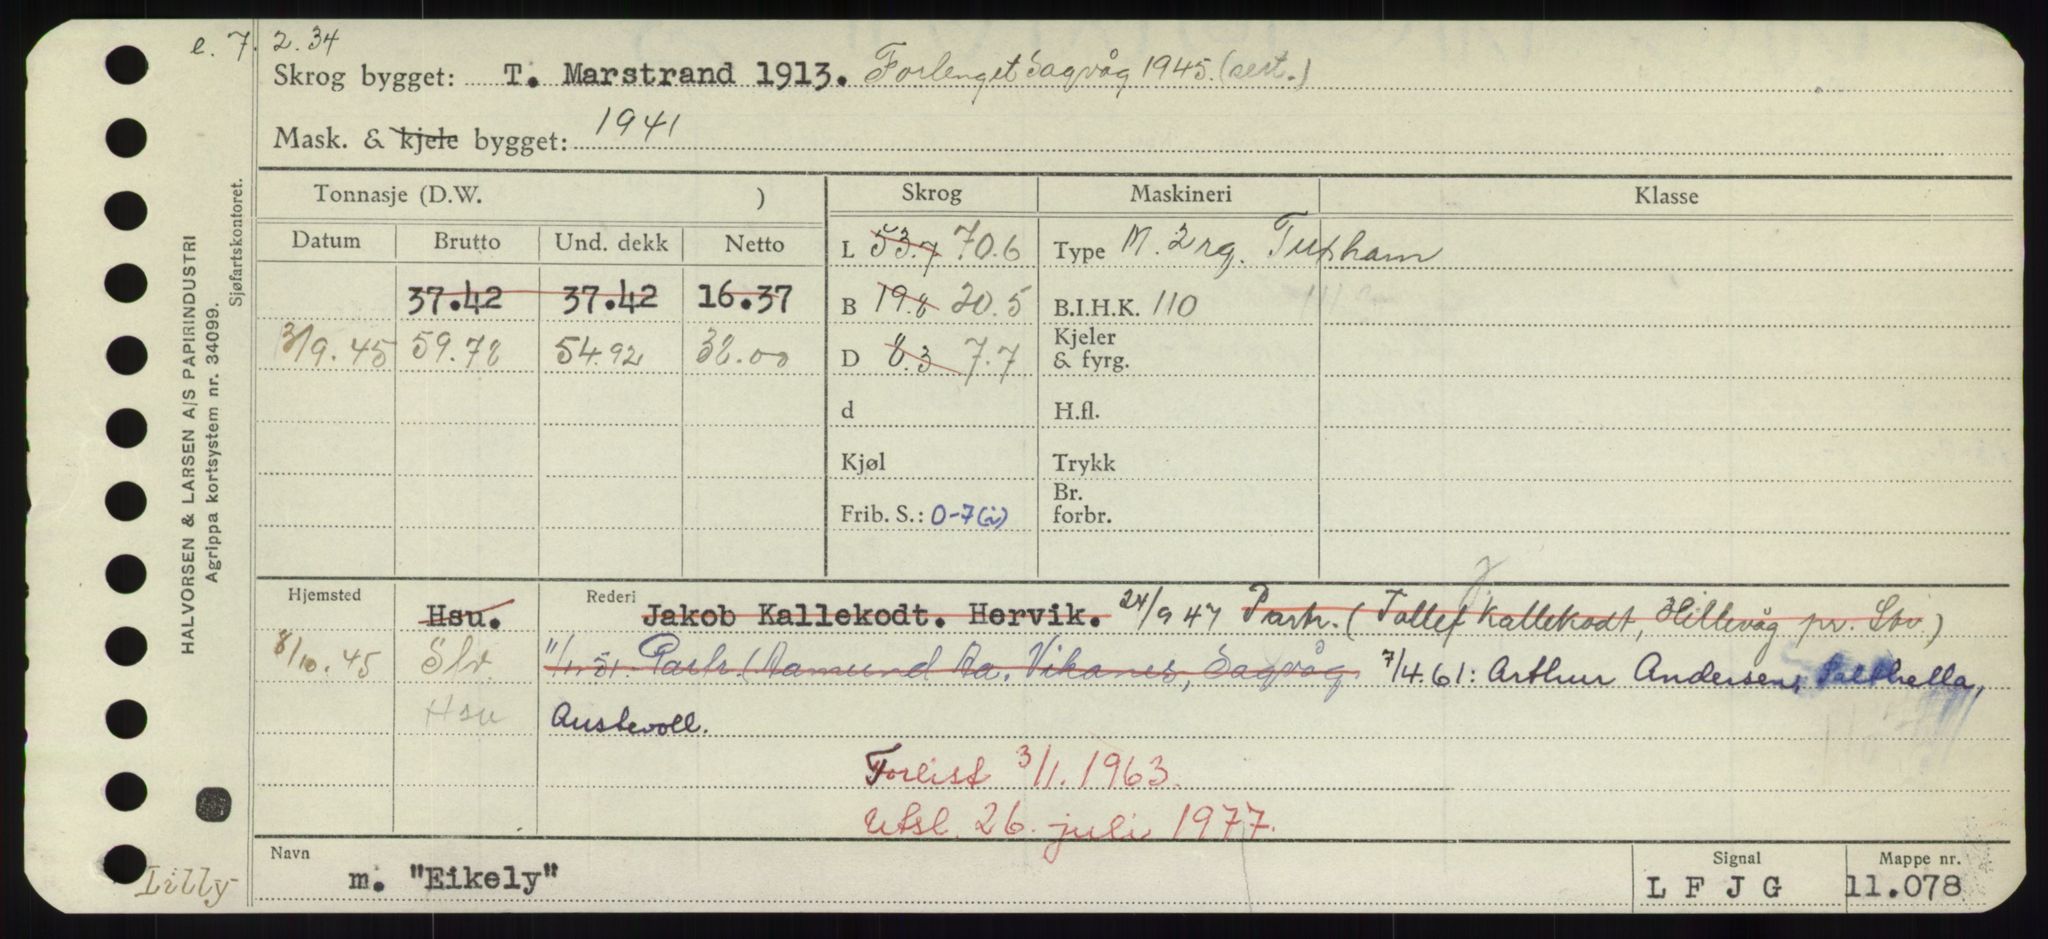 e. 7. 2. 34
Skrog bygget: T. Marstrand 1913. Forlenget Sagvåg 1945. (sert.)
Mask. & kjele bygget: 1941
Tonnasje (D.W. ) Skrog Maskineri Klasse
Datum Brutto Und. dekk Netto L 53.7 70.6 Type M. 2 rg. Tuxham
37.42 37.42 16.37 B 19.8 20.5 B.I.H.K. 110
3/9.45 59.78 54.92 38.00 D 8.3 7.7 Kjeler & fyrg.
d H.fl.
Kjøl Trykk
Frib. S.: 0-7(i) Br. forbr.
Hjemsted Hsu. Rederi Jakob Kallekodt. Hervik. 24/9 47 Partr. (Tollef J Kallekodt, Hillevåg pr. Stv.)
8/10.45 Slv. 11/1.51. Partr. (Aamund Aa. Vikanes, Sagvåg 7/4.61: Arthur Andersen,
Hsu Austevoll.
Forlist 3/1. 1963.
Utsl. 26. juli 1977.
Navn m. "Eikely" Signal L F J G Mappe nr. 11.078
Lilly
HALVORSEN & LARSEN A/S PAPIRINDUSTRI
Agrippa kortsystem nr. 34099.
Sjøfartskontoret.